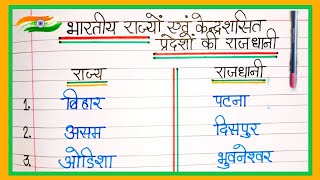 भारतीय राज्यों एवं केन्द्रशासित
प्रदेशों की राजधानी
राज्य राजधानी
1. बिहार पटना
2. असम दिसपुर
3. ओडिशा भुवनेश्वर